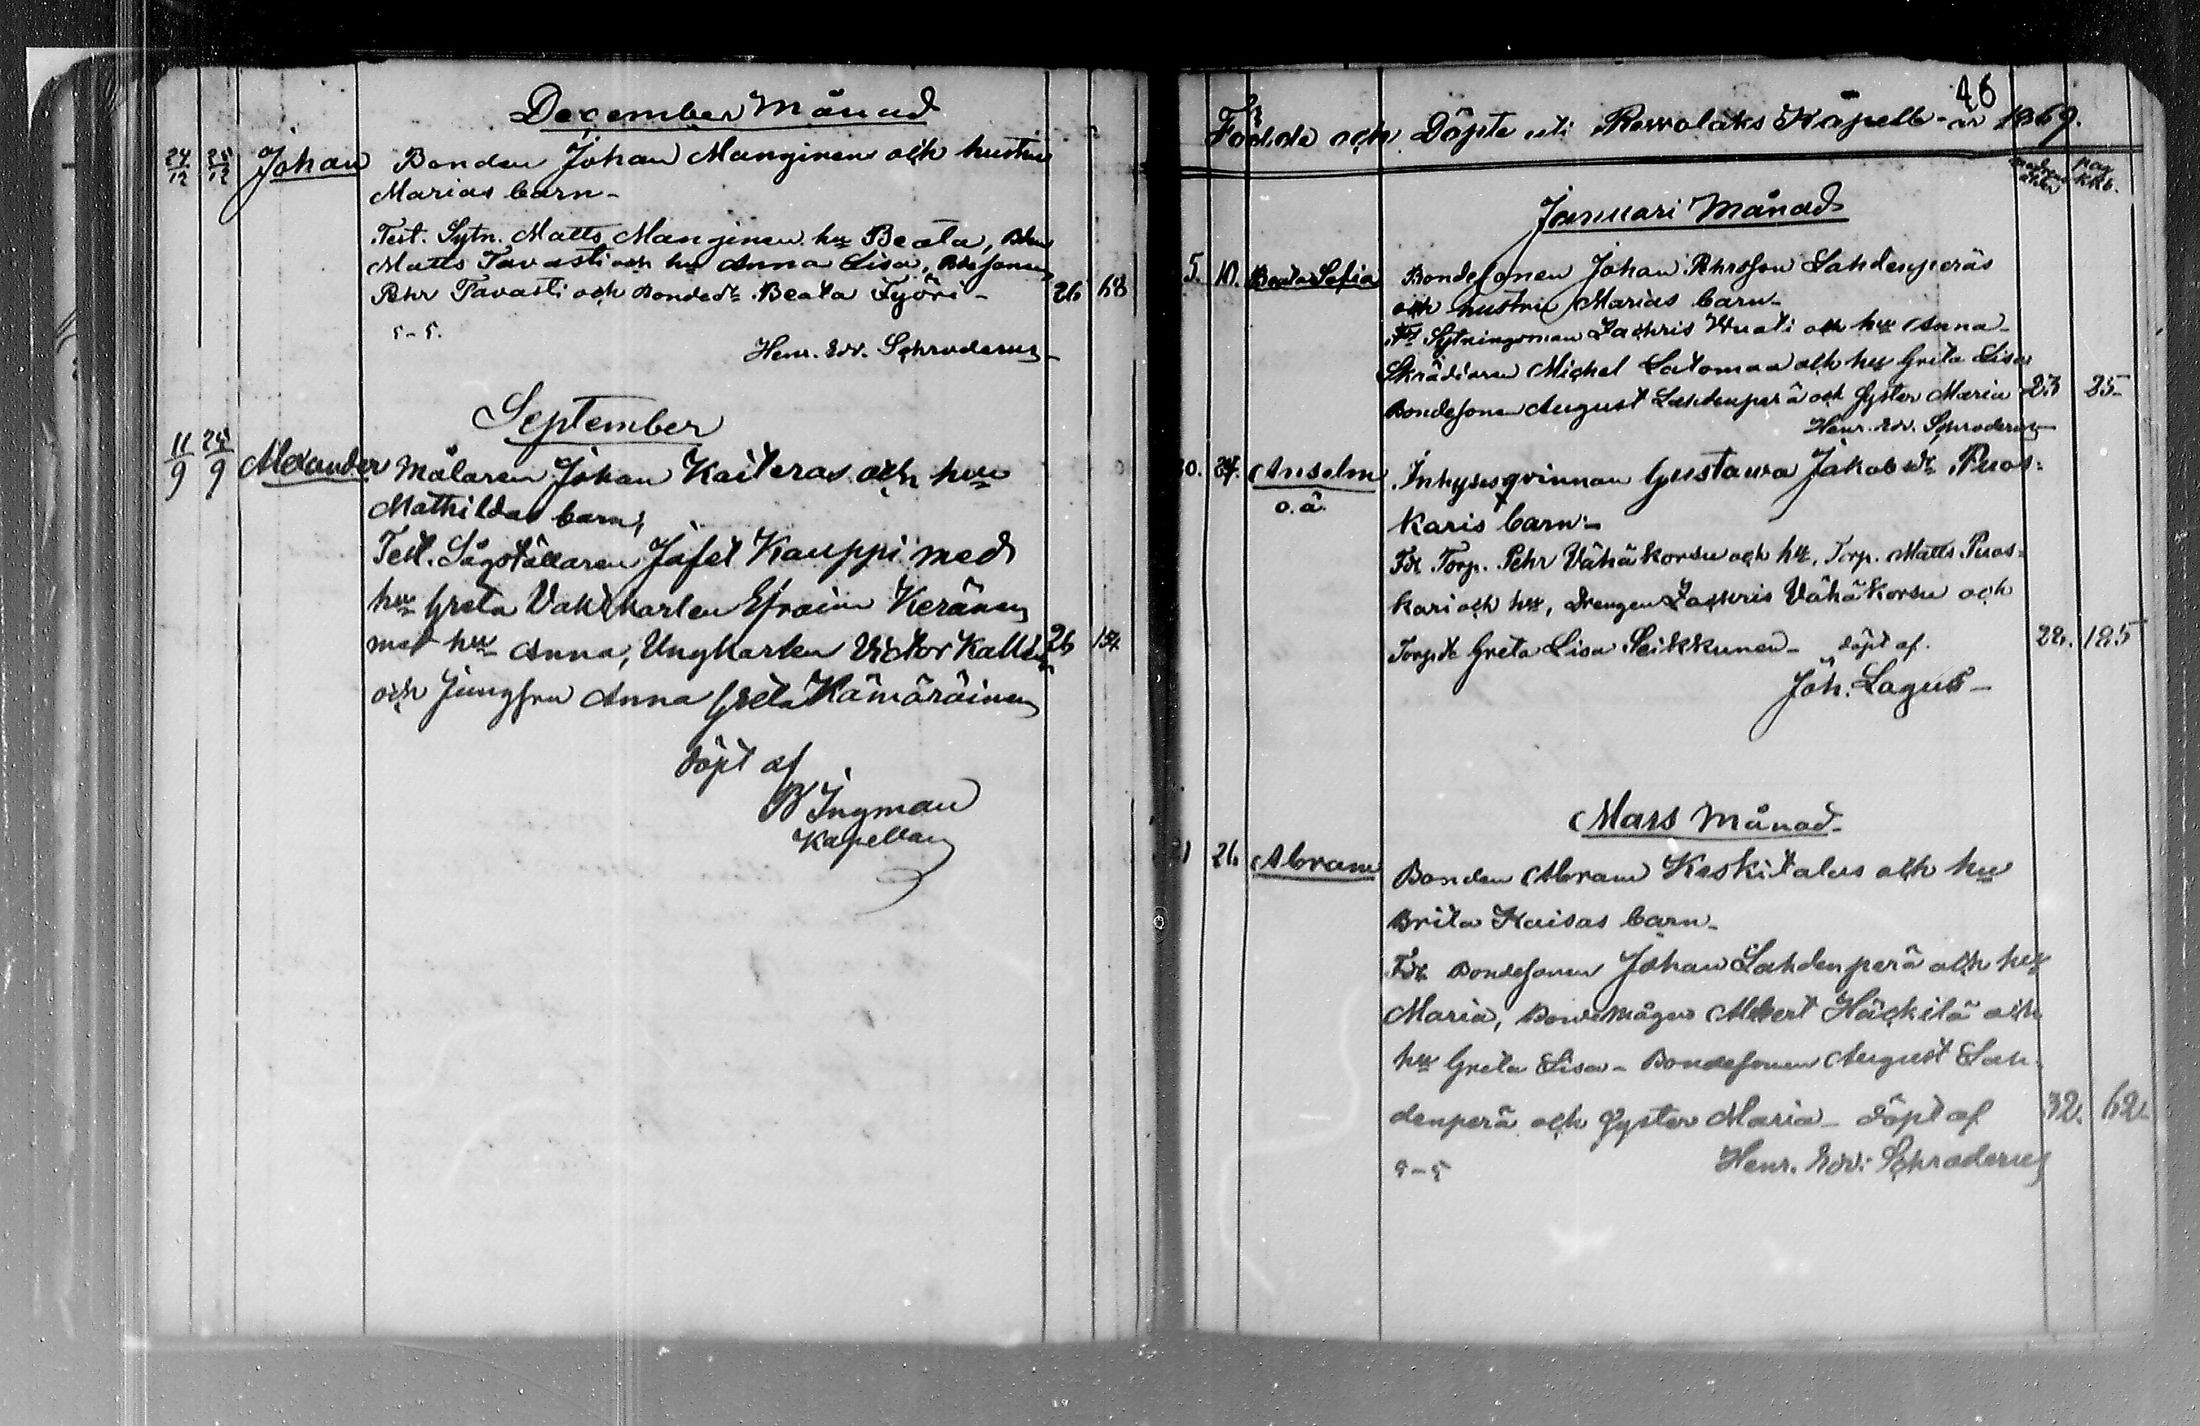 December Månad
24/12 25/12 Johan Bonden Johan Manginen och hustru
Marias barn-
Test. Sytn. Matts Manginen hu Beata, Bdn
Matts Tavasti och hu Anna Lisa, Bdesonen
Pehr Tavasti och Bondedr Beata Työri- 26 68
s-s.
Henr. Edv. Schroderus
September
11/9 24/9 Alexander Målaren Johan Kaiteras och hu
Mathildas barn,
Test. Sågställaren Jafet Kauppi med
hu Greta Vaktkarlen Efraim Keränen
med hu Anna, Ungkarlen Victor 26 154
och Jungfru Anna Greta Kämäräinen
döpt af
B Ingman
Kapellan
46
Födde och Döpte uti Revolaks Kapell- år 1869.
pag
kkb.
Januari Månad
5. 10. Beata Sofia Bondesonen Johan Pehrsson Lahdenperäs
och hustru Marias barn-
Fdr Sytningsman Zachris Wuoti och hu Anna-
Skräddaren Michel Latomaa och hu Greta Lisa
Bondesonen August Lahdenperä och Syster Maria 23 25
Henr. Edv. Schroderus
24. Anselm Inhysesqvinnan Gustawa Jakobsdr Puos-
o.ä. karis barn-
Fdr Torp. Pehr Vähäkorsu och hu, Torp. Matts Puos-
kari och hu, Drengen Zachris Vähäkorsu och
Torpdr Greta Lisa Seikkunen- döpt af. 28. 185
Joh. Lagus-
Mars Månad-
26 Abram Bonden Abram Keskitalus och hu
Brita Kaisas barn-
Fdr Bondesonen Johan Lahdenperä och hu
Maria, Bondemågen Albert Häckilä och
hu Greta Lisa- Bondesonen August Lah-
denperä och Syster Maria- döpt af 32. 62
s-s Henr. Edv. Schroderus